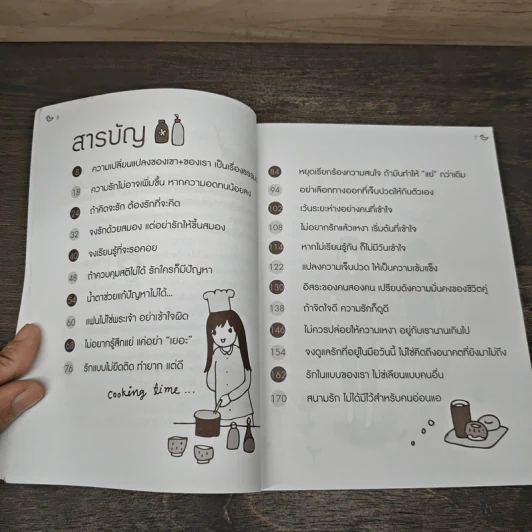 6
สารบัญ
8 ความเปลี่ยนแปลงของเขา+ของเรา เป็นเรื่องธรรมดา
18 ความรักไม่อาจเพิ่มขึ้น หากความอดทนน้อยลง
24 ถ้าคิดจะรัก ต้องรักที่จะคิด
32 จงรักด้วยสมอง แต่อย่ารักให้ขึ้นสมอง
40 จงเรียนรู้ที่จะรอคอย
48 ถ้าควบคุมสติไม่ได้ รักใครก็มีปัญหา
54 น้ำตาช่วยแก้ปัญหาไม่ได้...
60 แฟนไม่ใช่พระเจ้า อย่าเข้าใจผิด
68 ไม่อยากรู้สึกแย่ แค่อย่า "เยอะ"
76 รักแบบไม่ยึดติด ทำยาก แต่ดี
cooking time ...
7
84 หยุดเรียกร้องความสนใจ ถ้ามันทำให้ "แย่" กว่าเดิม
94 อย่าเลือกทางออกที่เจ็บปวดให้กับตัวเอง
102 เว้นระยะห่างอย่างคนที่เข้าใจ
108 ไม่อยากรักแล้วเหงา เริ่มต้นที่เข้าใจ
114 หากไม่เรียนรู้กัน ก็ไม่มีวันเข้าใจ
122 แปลงความเจ็บปวด ให้เป็นความเข้มแข็ง
130 อิสระของคนสองคน เปรียบดังความมั่นคงของชีวิตคู่
138 ถ้าจิตใจดี ความรักก็ดูดี
146 ไม่ควรปล่อยให้ความเหงา อยู่กับเรานานเกินไป
154 จงดูแลรักที่อยู่ในมือวันนี้ ไม่ใช่คิดถึงอนาคตที่ยังมาไม่ถึง
162 รักในแบบของเรา ไม่ใช่เลียนแบบคนอื่น
170 สนามรัก ไม่ได้มีไว้สำหรับคนอ่อนแอ